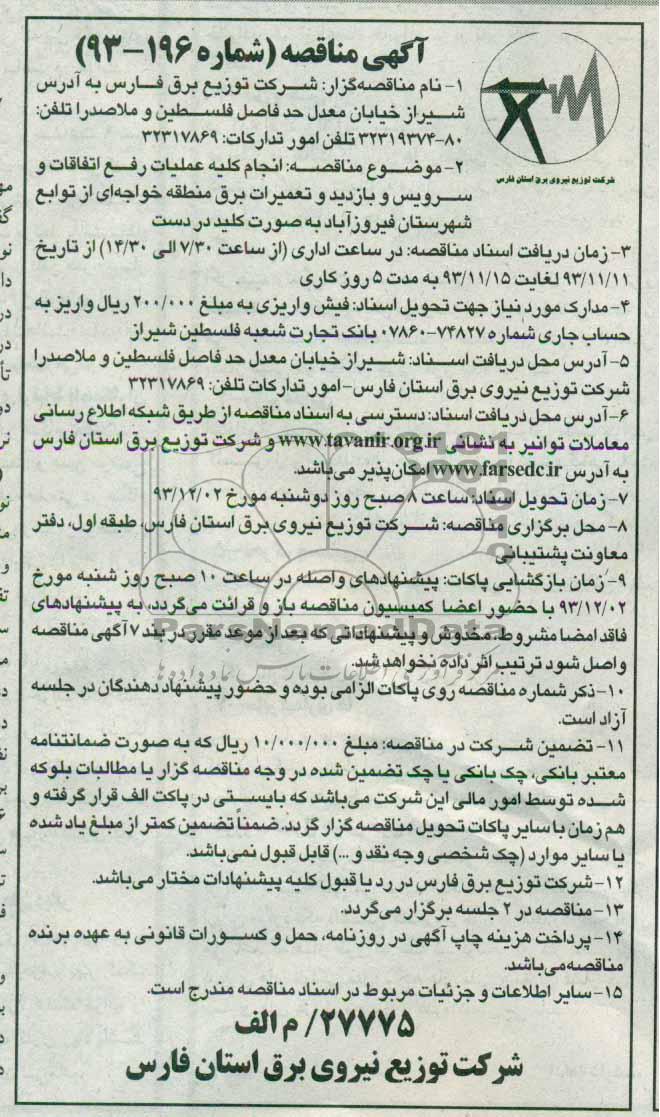 آگهی مناقصه (شماره ۱۹۶-۹۳)
۱- نام مناقصه‌گزار: شرکت توزیع برق فارس به آدرس
شیراز خیابان معدل حد فاصل فلسطین و ملاصدرا تلفن:
۸۰-۳۲۳۱۹۳۷۴ تلفن امور تدارکات: ۳۲۳۱۷۸۶۹
۲- موضوع مناقصه: انجام کلیه عملیات رفع اتفاقات و
سرویس و بازدید و تعمیرات برق منطقه خواجه‌ای از توابع
شهرستان فیروزآباد به صورت کلید در دست
شرکت توزیع نیروی برق استان فارس
۳- زمان دریافت اسناد مناقصه: در ساعت اداری (از ساعت ۷/۳۰ الی ۱۴/۳۰) از تاریخ
۹۳/۱۱/۱۱ لغایت ۹۳/۱۱/۱۵ به مدت ۵ روز کاری
۴- مدارک مورد نیاز جهت تحویل اسناد: فیش واریزی به مبلغ ۲۰۰/۰۰۰ ریال واریز به
حساب جاری شماره ۷۴۸۲۷-۰۷۸۶۰ بانک تجارت شعبه فلسطین شیراز
۵- آدرس محل دریافت اسناد: شیراز خیابان معدل حد فاصل فلسطین و ملاصدرا
شرکت توزیع نیروی برق استان فارس-امور تدارکات تلفن: ۳۲۳۱۷۸۶۹
۶- آدرس محل دریافت اسناد: دسترسی به اسناد مناقصه از طریق شبکه اطلاع رسانی
معاملات توانیر به نشانی www.tavanir.org.ir و شرکت توزیع برق استان فارس
به آدرس www.farsedc.ir امکان‌پذیر می‌باشد.
۷- زمان تحویل اسناد: ساعت ۸ صبح روز دوشنبه مورخ ۹۳/۱۲/۰۲
۸- محل برگزاری مناقصه: شرکت توزیع نیروی برق استان فارس، طبقه اول، دفتر
معاونت پشتیبانی
۹- زمان بازگشایی پاکات: پیشنهادهای واصله در ساعت ۱۰ صبح روز شنبه مورخ
۹۳/۱۲/۰۲ با حضور اعضا کمیسیون مناقصه باز و قرائت می‌گردد، به پیشنهادهای
فاقد امضا مشروط، مخدوش و پیشنهاداتی که بعد از موعد مقرر در بند ۷ آگهی مناقصه
واصل شود ترتیب اثر داده نخواهد شد.
۱۰- ذکر شماره مناقصه روی پاکات الزامی بوده و حضور پیشنهاد دهندگان در جلسه
آزاد است.
۱۱- تضمین شرکت در مناقصه: مبلغ ۱۰/۰۰۰/۰۰۰ ریال که به صورت ضمانتنامه
معتبر بانکی، چک بانکی یا چک تضمین شده در وجه مناقصه گزار یا مطالبات بلوکه
شده توسط امور مالی این شرکت می‌باشد که بایستی در پاکت الف قرار گرفته و
هم زمان با سایر پاکات تحویل مناقصه گزار گردد. ضمناً تضمین کمتر از مبلغ یاد شده
یا سایر موارد (چک شخصی وجه نقد و ...) قابل قبول نمی‌باشد.
۱۲- شرکت توزیع برق فارس در رد یا قبول کلیه پیشنهادات مختار می‌باشد.
۱۳- مناقصه در ۲ جلسه برگزار می‌گردد.
۱۴- پرداخت هزینه چاپ آگهی در روزنامه، حمل و کسورات قانونی به عهده برنده
مناقصه می‌باشد.
۱۵- سایر اطلاعات و جزئیات مربوط در اسناد مناقصه مندرج است.
۲۷۷۷۵/ م الف
شرکت توزیع نیروی برق استان فارس
ParsNamadData